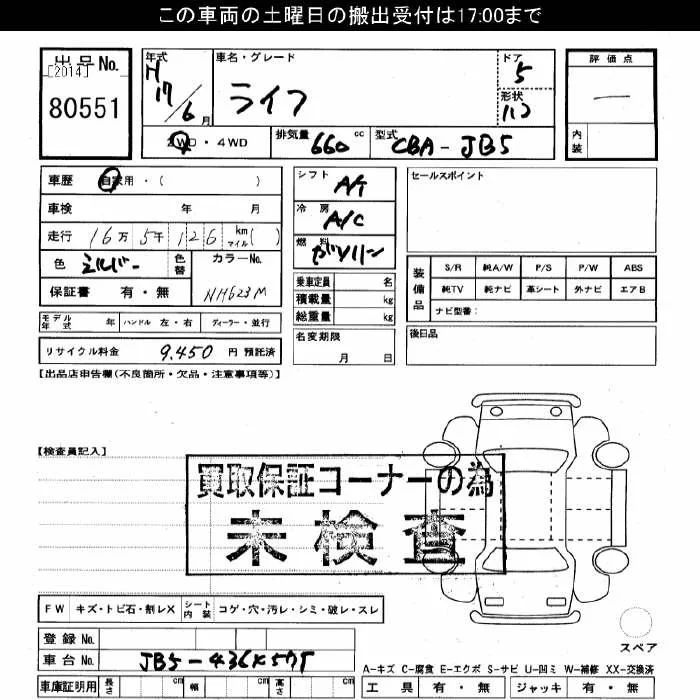 この車両の土曜日の搬出受付は17:00まで
出品No.
[2014]
80551
年式
H
17/6月
車名・グレード
ライフ
ドア
5
形状
ハコ
評価点
―
内装
2WD・4WD
排気量 660 cc
型式 CBA-JB5
車歴 自家用・( )
車検 年 月
走行 16万 5千 126 km マイル( )
色 シルバー 色替 カラーNo.
保証書 有・無 NH623M
シフト A/T
冷房 A/C
燃料 ガソリン
乗車定員 名
積載量 kg
総重量 kg
セールスポイント
装備品
S/R 純A/W P/S P/W ABS
純TV 純ナビ 革シート 外ナビ エアB
ナビ型番:
モデル年式 年 ハンドル 左・右 ディーラー・並行
名変期限
月 日
後日品
リサイクル料金 9,450 円 預託済
【出品店申告欄(不良箇所・欠品・注意事項等)】
【検査員記入】
買取保証コーナーの為
未検査
FW キズ・トビ石・割レX シート内装 コゲ・穴・汚レ・シミ・破レ・スレ
スペア
登録No.
車台No.
A-キズ C-腐食 E-エクボ S-サビ U-凹ミ W-補修 XX-交換済
車庫証明用 長さ cm 幅 cm 高さ cm
工具 有・無 ジャッキ 有・無